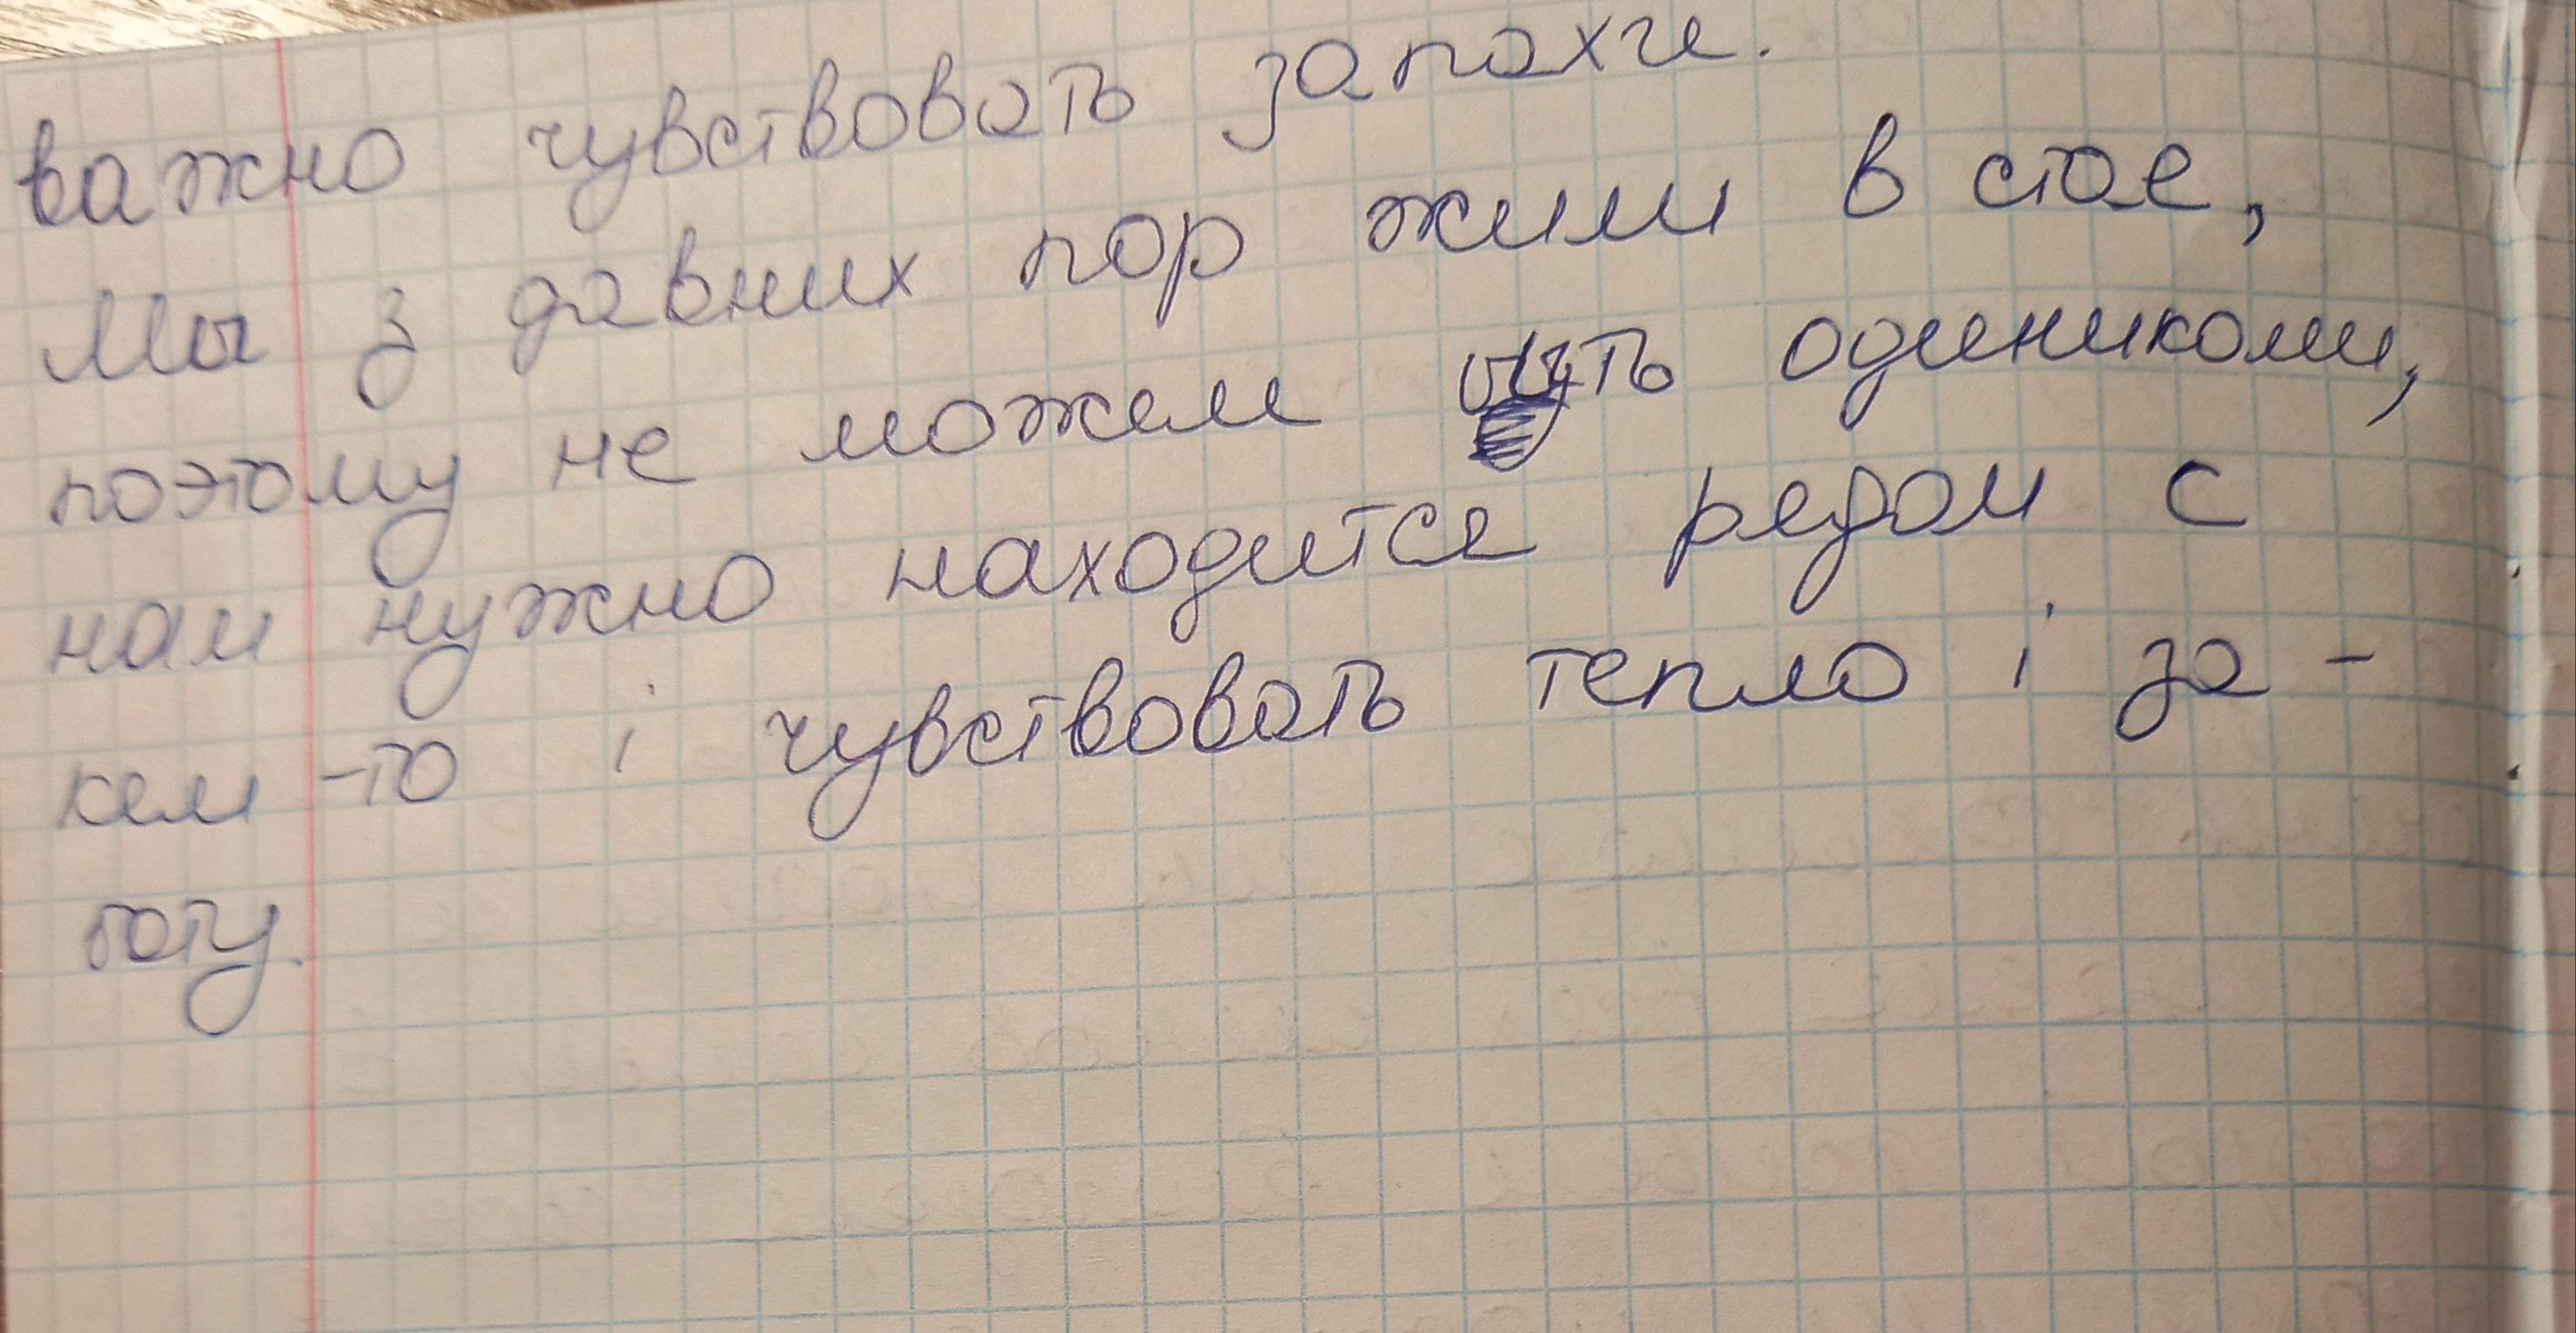 важно чувствовать запахи.
Мы з давних пор жили в стае,
поэтому не можем быть одиниками,
нам нужно находится рядом с
кем-то і чувствовать тепло і за-
боту.